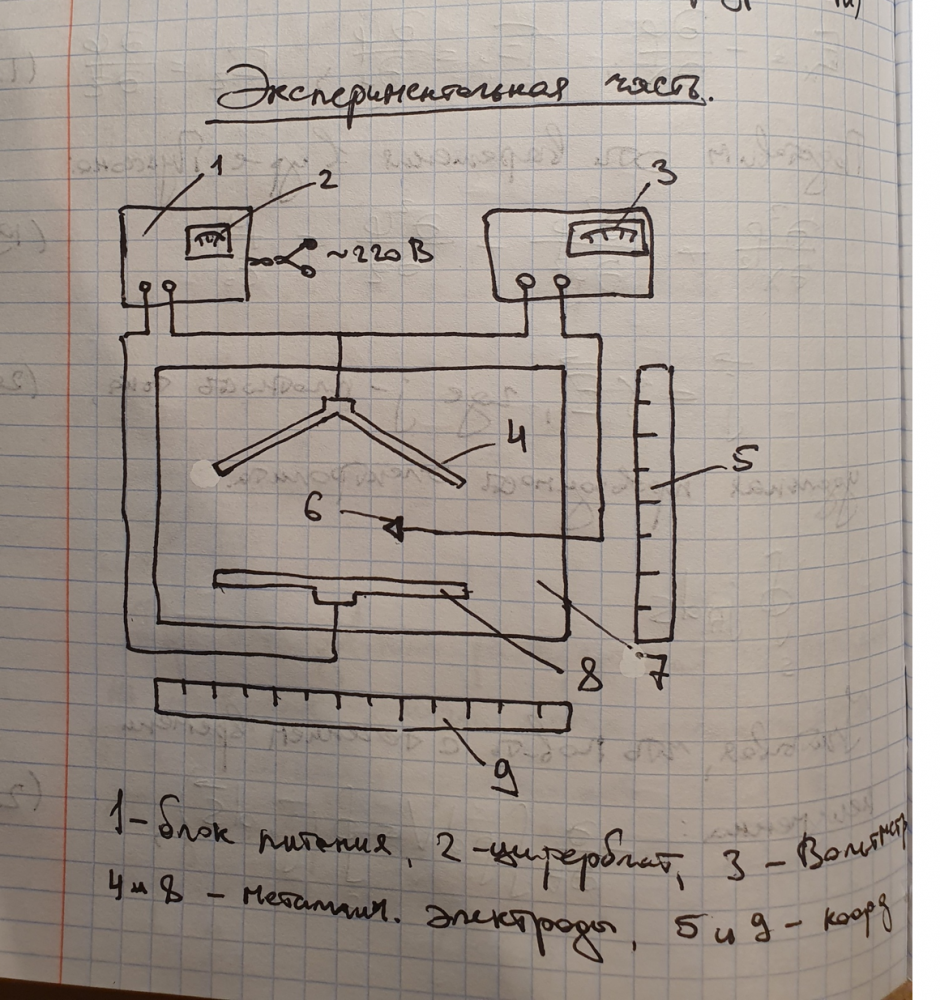 Экспериментальная часть.
1
2
3
~220 В
4
5
6
7
8
9
1 - блок питания, 2 - циферблат, 3 - Вольтметр
4 и 8 - металлич. электроды, 5 и 9 - коорд